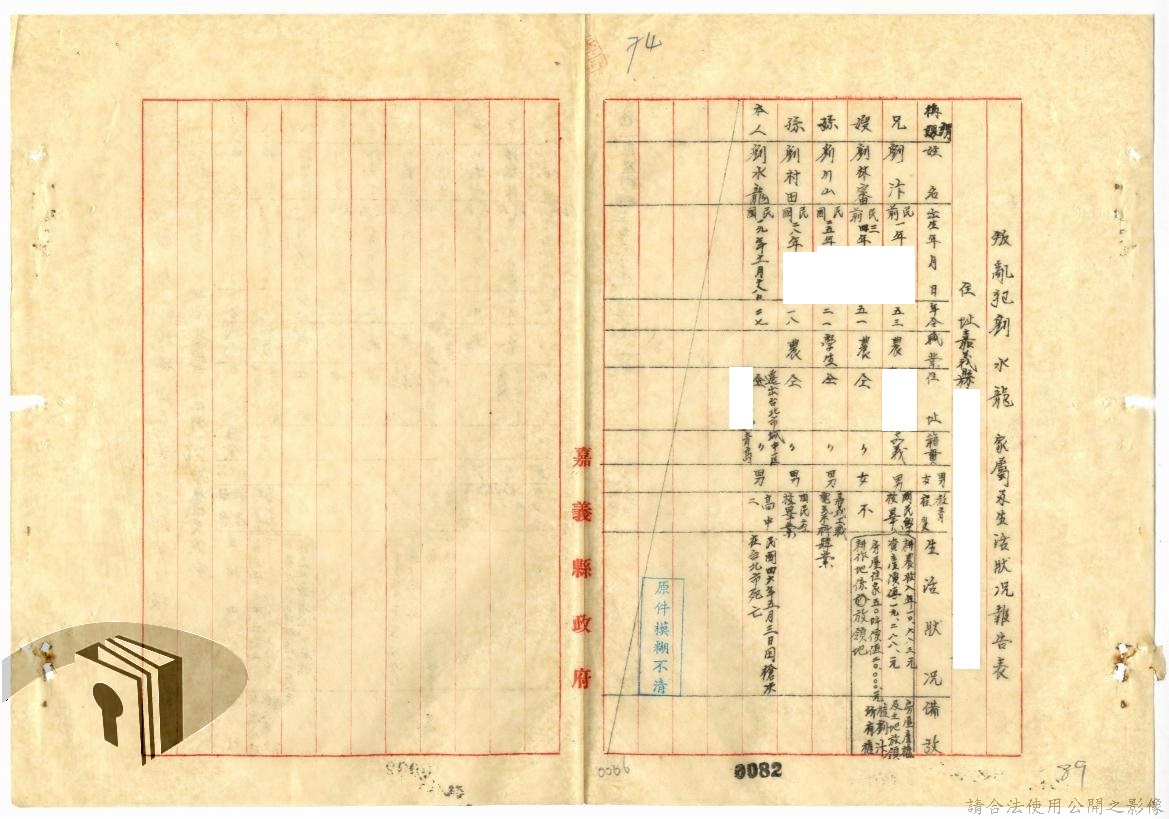 74
叛亂犯劉水龍家屬及生活狀況報告表
住址嘉義縣
稱謂 姓名 出生年月日 年令 職業 住址 籍貫 男女 教育程度 生活狀況 備攷
兄 劉汴 民前一年 五三 農 嘉義 男 國民學校畢業 耕農收入年一〇、六八三元 資產價值一九、二八八元 房屋產權及土地放領權劉汴所有
嫂 劉林審 民前三四年 五一 農 仝 〃 女 不 房屋住家五〇坪價值二〇、〇〇〇元 耕作地係放領地
孫 劉川山 民國二五年 二一 學生 仝 〃 男 嘉義工職電系科肄業
孫 劉村田 民國二八年 一八 農 仝 〃 男 國民學校畢業
本人 劉水龍 民國一九年十二月廿八日 二七 遷出台北市城中區青島 男 高中二 民國四六年五月三日因槍決在台北市死亡
原件模糊不清
嘉義縣政府
0096
0082
89
請合法使用公開之影像